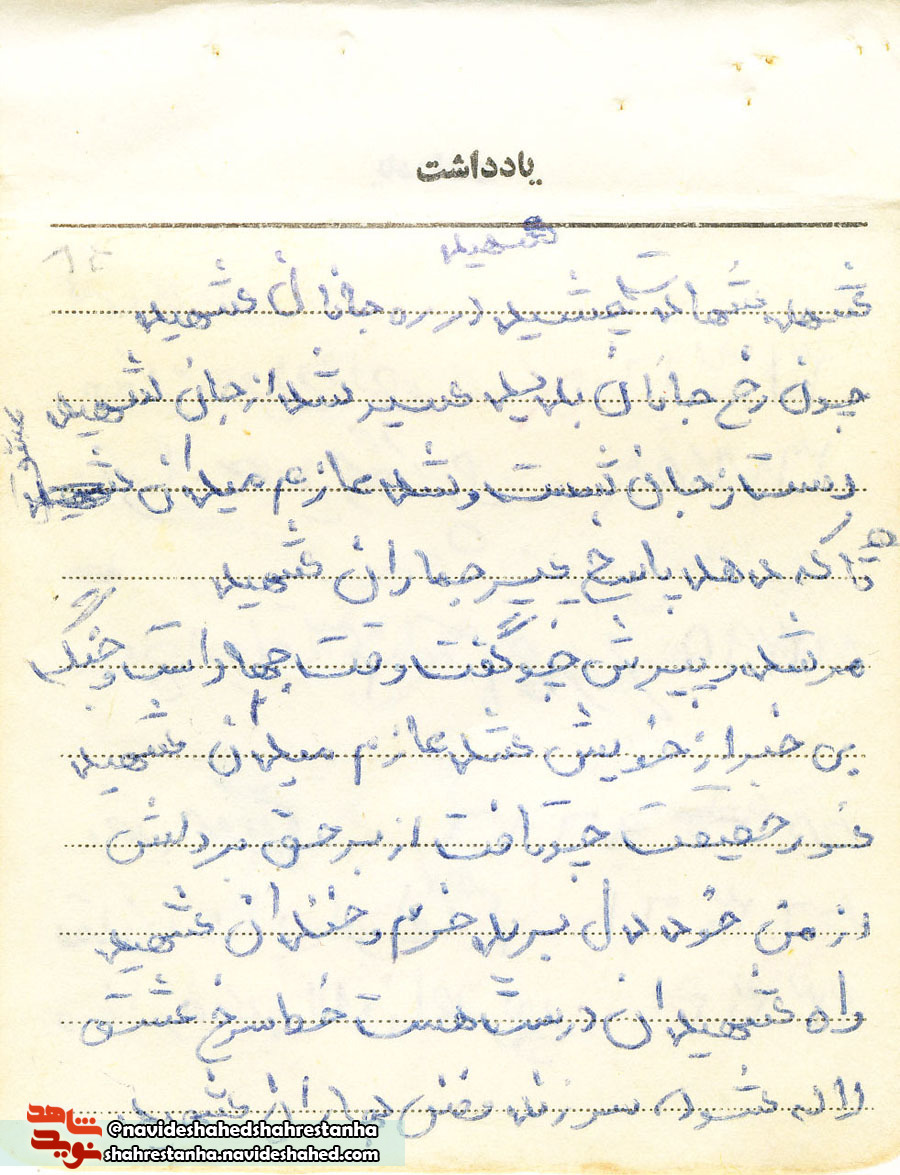 یادداشت
شهید
شهد شهادت چشید در ره جانان شهید
چون رخ جانان بدید سیر شد از جان شهید
دست ز جان شست و شد عازم میدان عشق
تا که دهد پاسخ پیر جماران شهید
مرشد و پیرش چو گفت وقت جهاد است و جنگ
بی خبر از خویش شد عازم میدان شهید
نور حقیقت چو تافت از بر حق بر دلش
از من خود دل برید خرم و خندان شهید
راه شهیدان درست هست خط سرخ عشق
لاله شود سر زند بهاران شهید
شاهد
نوید
@navideshahedshahrestanha
shahrestanha.navideshahed.com